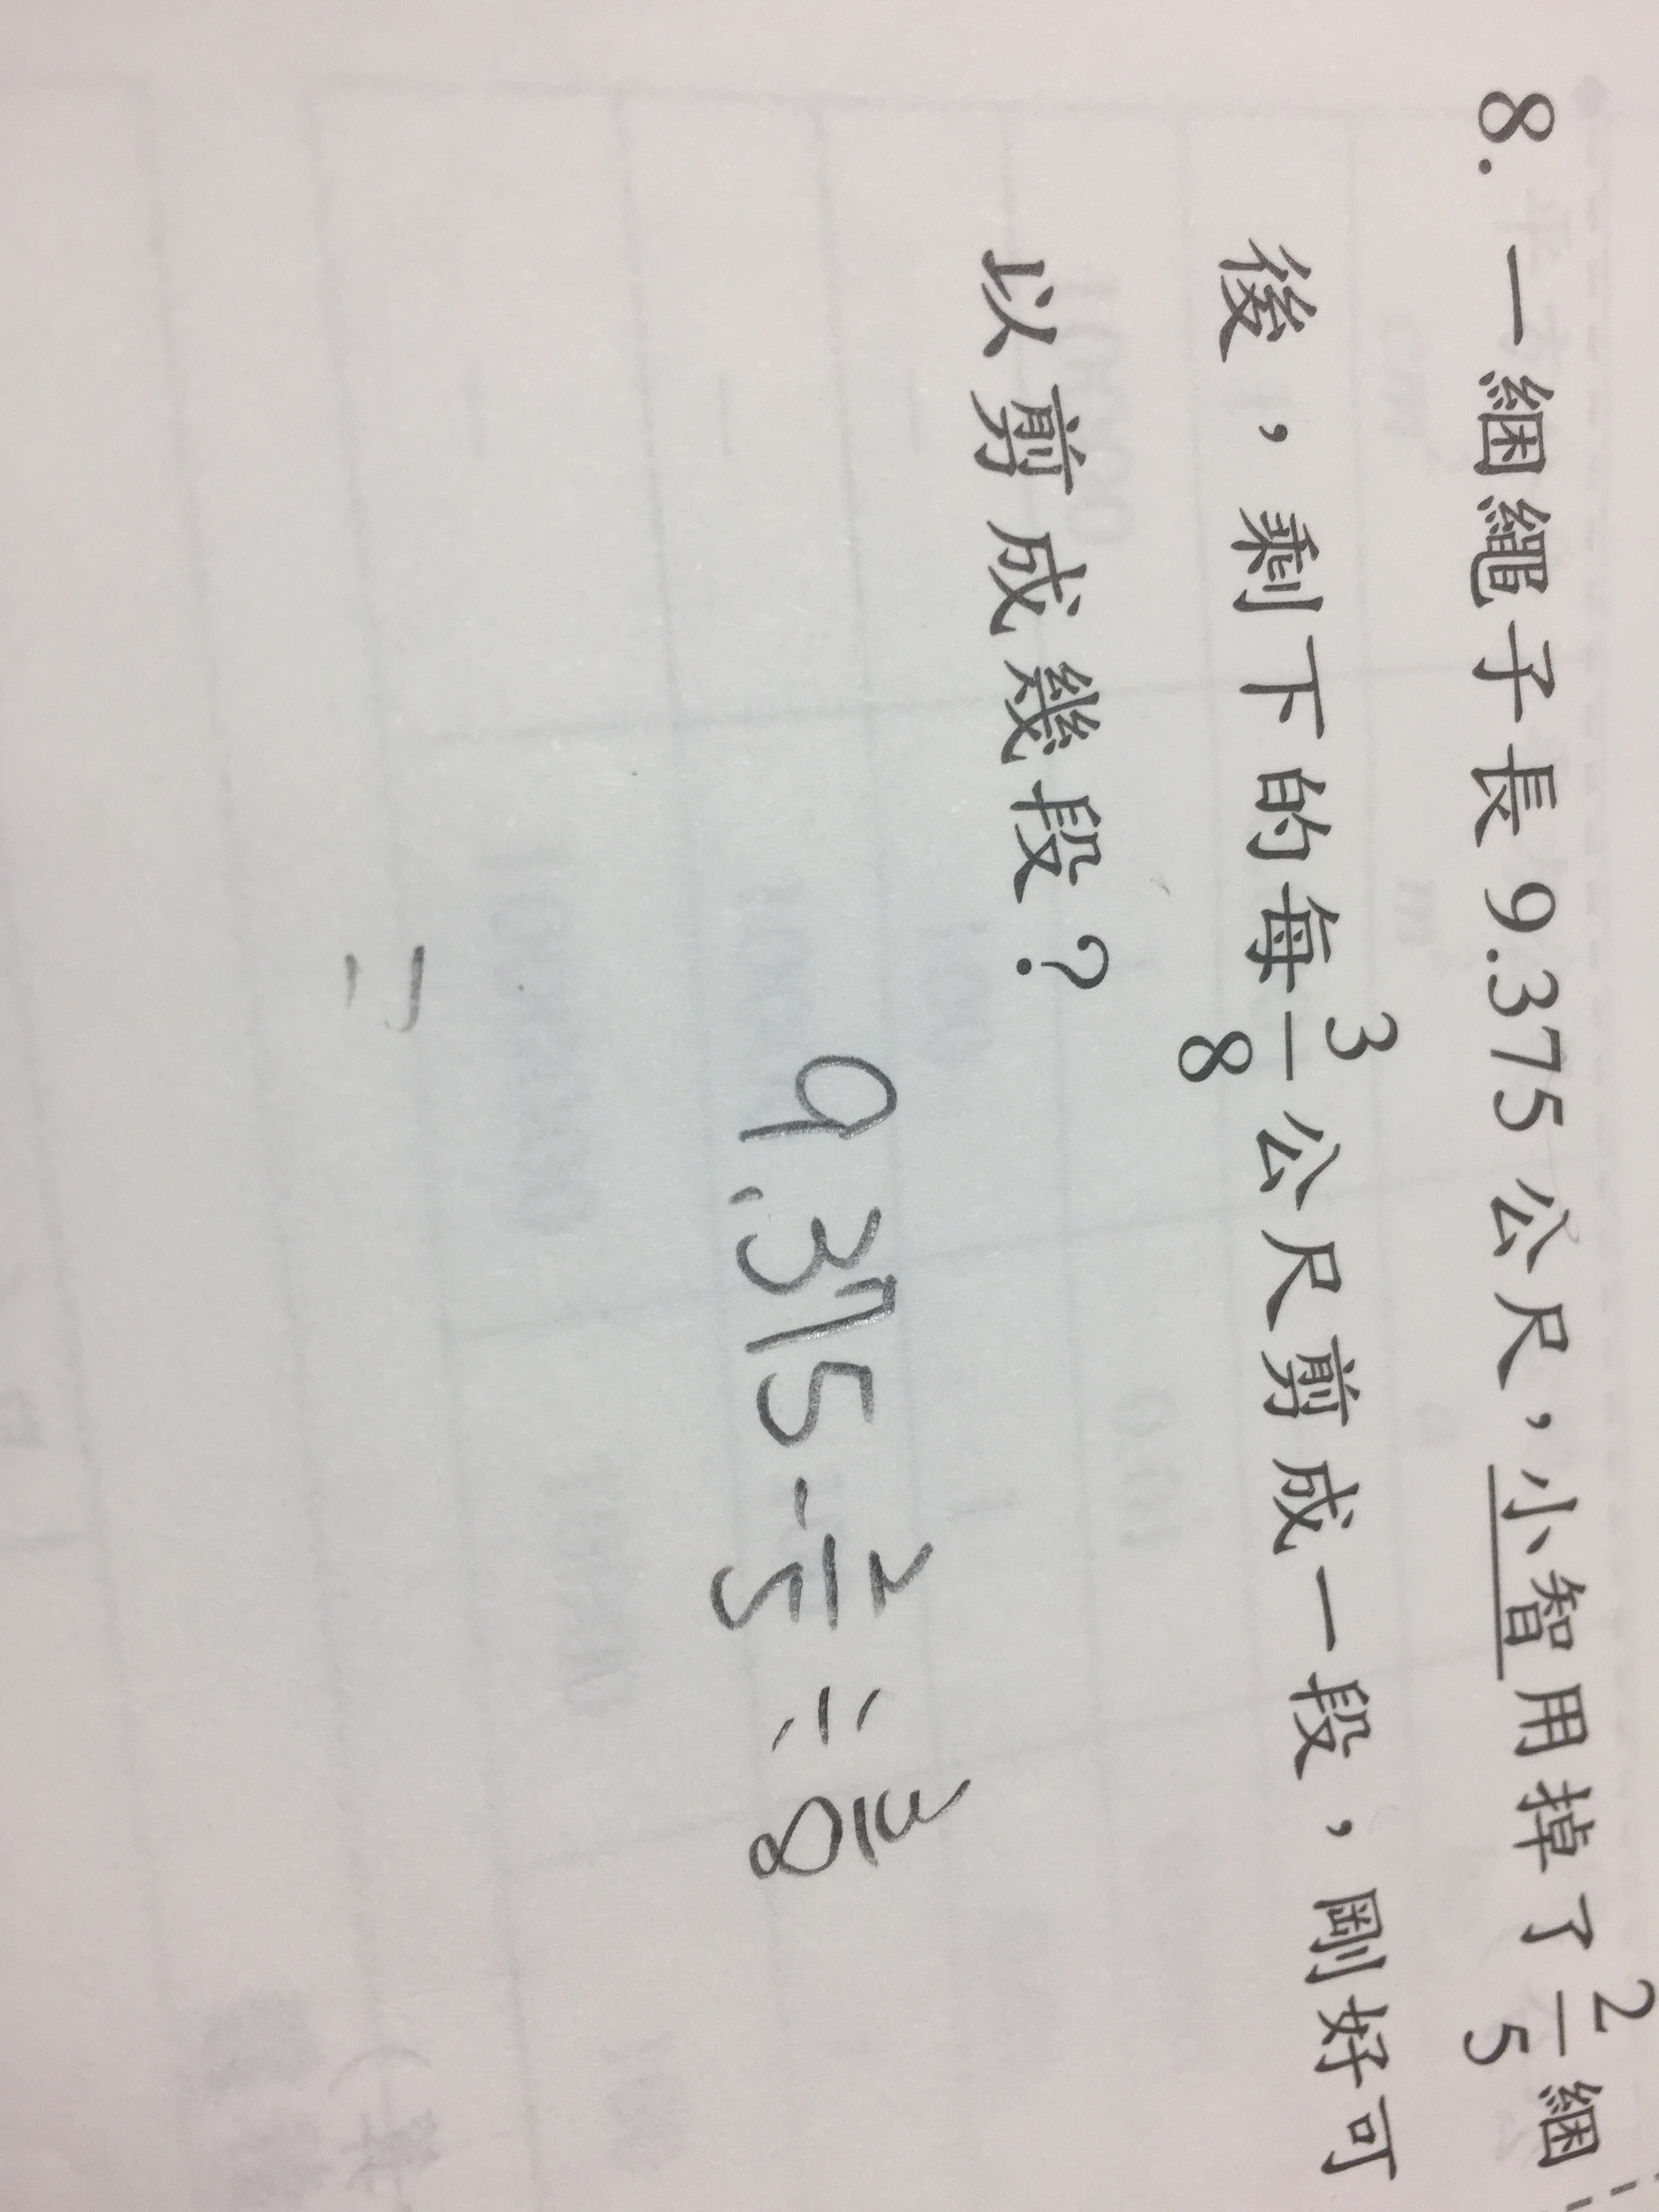 8. 一綑繩子長9.375公尺，小智用掉了2/5綑
後，剩下的每3/8公尺剪成一段，剛好可
以剪成幾段？
9.375-2/5÷3/8
=